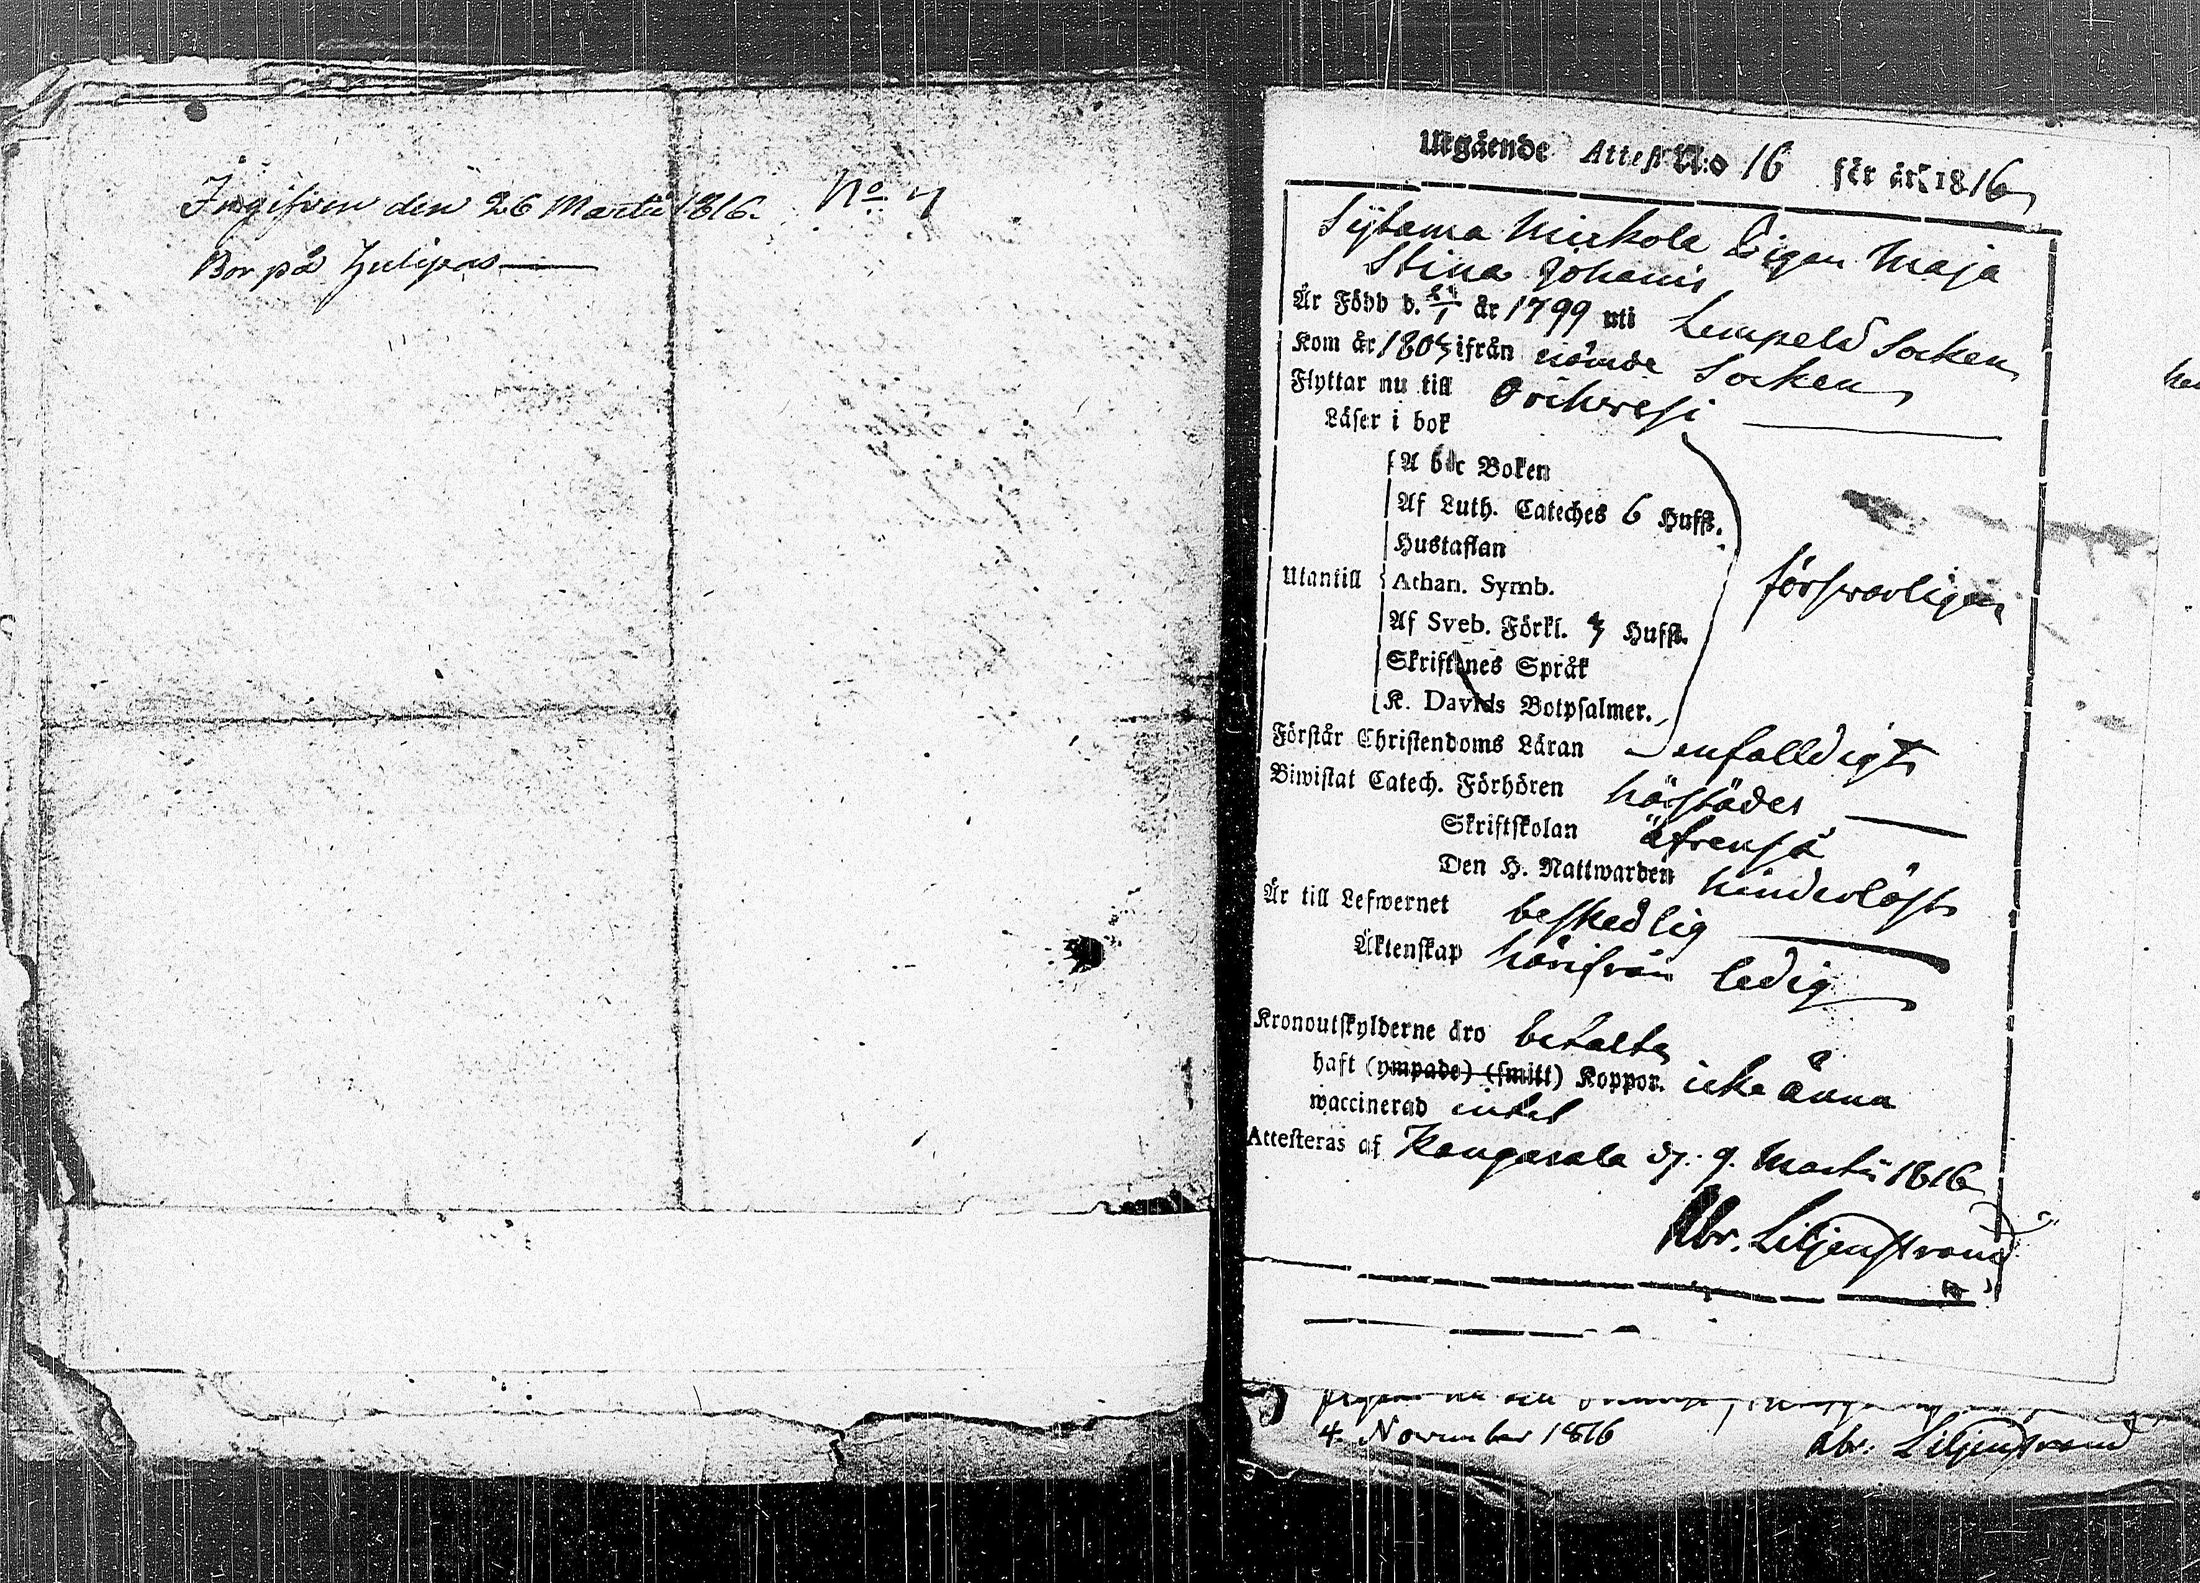 Ingifven den 26 Martii 1816. No 7
Bor på Julipas
Utgående Attest N:o 16 för år 1816
Sÿtama Mickola Pigan Maja
Stina Johans
Är Född d. 24/1 år 1799 uti Lempelä Socken
Kom år 1804 ifrån nämde Socken
Flyttar nu till Orihvesi
Läser i bok
A b c Boken
Af Luth. Cateches 6 Hufst.
Hustaflan
Utantill Athan. Symb. försvarligen
Af Sveb. Förkl. Hufst.
Skriftenes Språk
K. Davids Botpsalmer.
Förstår Christendoms Läran enfalldigt
Biwistat Catech. Förhören härstädes
Skriftskolan äfrenså
Den H. Nattwarden hinderlöst
Är till Lefwernet beskedlig
Äktenskap härifrån ledig
Kronoutskylderne äro betalte
haft (ympade) (smitt) Koppor. icke änna
waccinerad intet
Attesteras af Kangasala d. 9. Martii 1816
Abr. Liljenstrand
4. November 1816 Abr. Liljenstrand